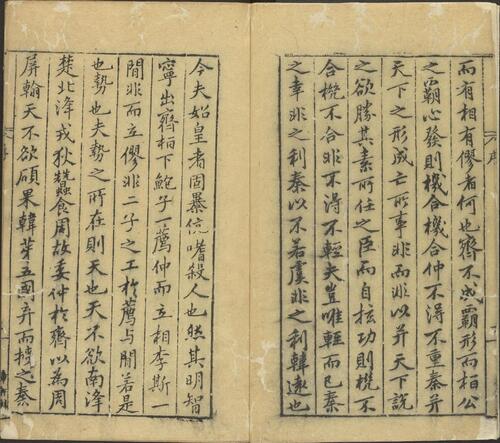 而有相有僇者何也齊不成霸形而桓公
之霸心發則機合機合仲不得不重秦并
天下之形成亡所事非而非以并天下說
之欲勝其素所任之臣而自抜功則機不
合機不合非不得不輕夫豈唯輕而已秦
之幸非之利秦以不若虞非之利韓遠也
今夫始皇者固暴伉嗜殺人也然其明智
寧出齊桓下鮑子一薦仲而立相李斯一
間非而立僇非二子之工於薦與間若是
也勢也夫勢之所在則天也天不欲南濘
楚北濘戎狄蠶食周故委仲於齊以為周
屏翰天不欲碩果韓芽五國弃而摶之秦